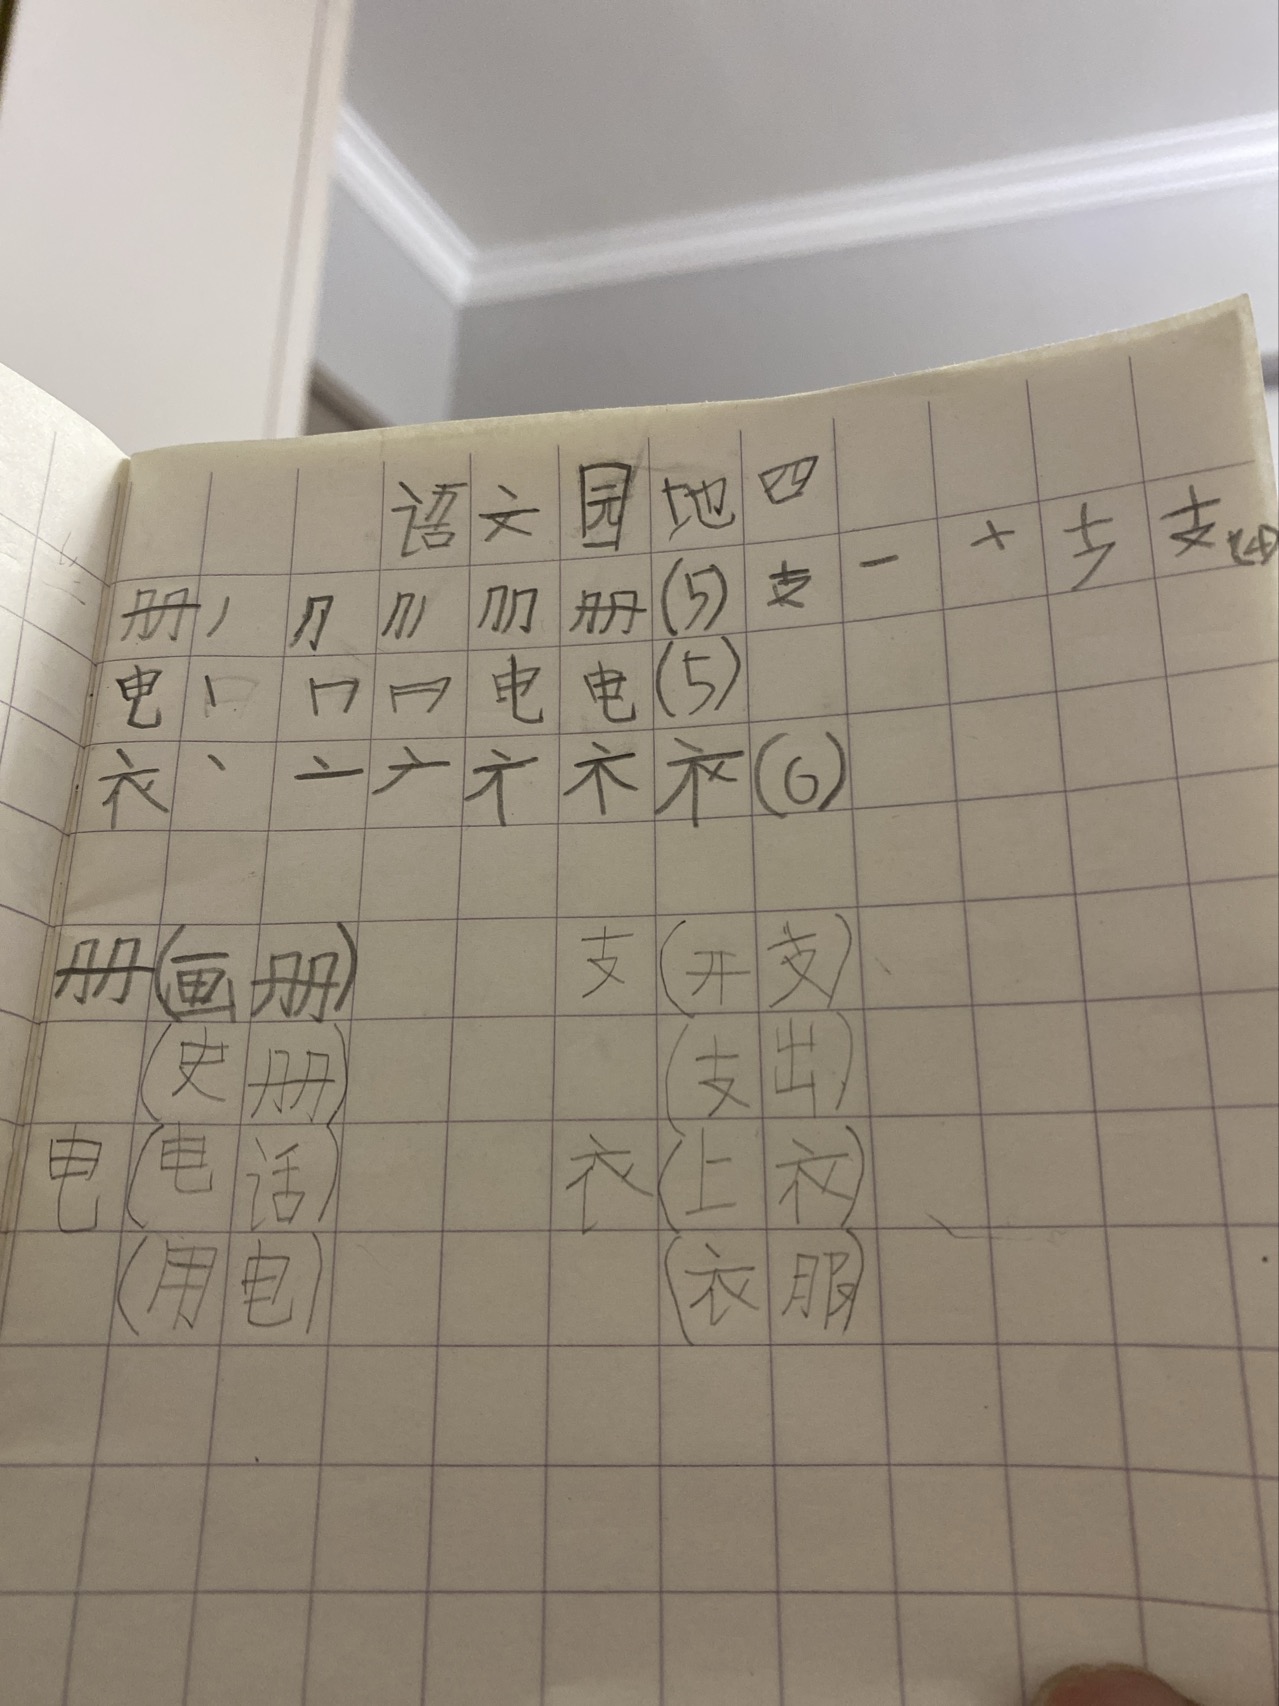 语文园地四
册 丿 ⺆ 刀丨 刀刀 册 (5) 支 一 十 ㄎ 支 (4)
电 丨 冂 日 电 电 (5)
衣 丶 亠 ナ 衣 (6)
册 (画册) 支 (开支)
(史册) (支出)
电 (电话) 衣 (上衣)
(用电) (衣服)